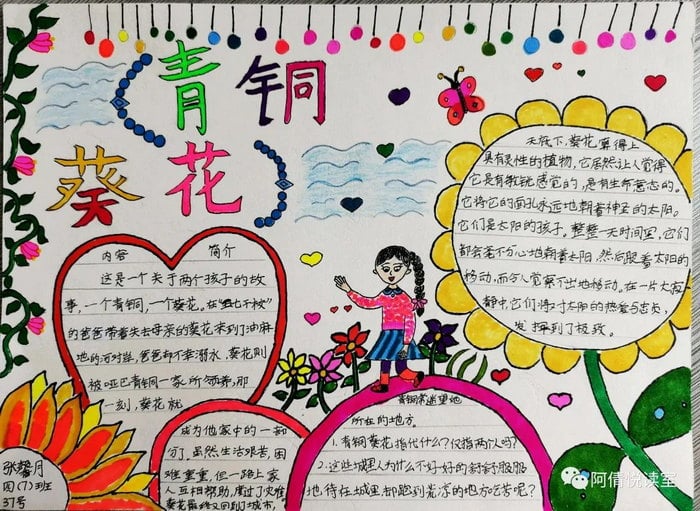 《青铜
葵花》
内容 简介
这是一个关于两个孩子的故
事,一个青铜,一个葵花。在
的爸爸带着失去母亲的葵花来到冲麻
地的河对岸,爸爸却不幸溺水,葵花则
被哑巴青铜一家所领养,那
一刻,葵花就
成为他家中的一部
分了,虽然生活艰苦,困
难重重,但一路上家
人互相帮助,度过了灾难
葵花最终又回到了城市,
天底下,葵花算得上
具有灵性的植物,它居然让人觉得
它是有敏锐感觉的,是有生命意志的。
它将它的面孔永远地朝着神圣的太阳。
它们是太阳的孩子。整整一天时间里,它们
都会毫不分心地朝着太阳,然后跟着太阳的
移动,而令人觉察不出地移动。在一片大寂
静中,它们将对太阳的热爱与忠贞,
发挥到了极致。
青铜常遥望她
所在的地方。
1.青铜葵花指代什么?仅指两个人吗?
2.这些城里人为什么不好好的舒舒服服
地待在城里却跑到荒凉的地方吃苦呢?
张馨月
四(7)班
37号
阿倩悦读室